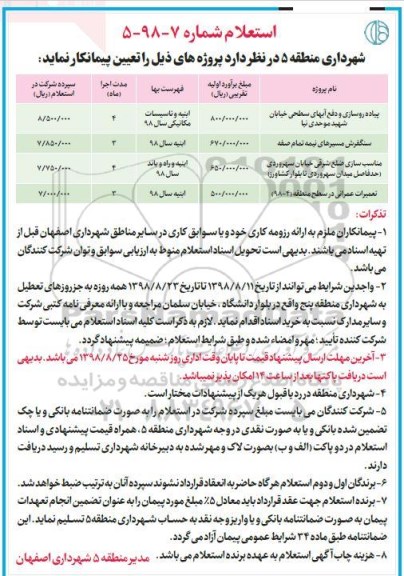 استعلام شماره ۷-۹۸-۵
شهرداری منطقه ۵ در نظر دارد پروژه های ذیل را تعیین پیمانکار نماید:
نام پروژه مبلغ برآورد اولیه تقریبی (ریال) فهرست بها مدت اجرا (ماه) سپرده شرکت در استعلام (ریال)
پیاده روسازی و دفع آبهای سطحی خیابان شهید موحدی نیا ۸۰۰/۰۰۰/۰۰۰ ابنیه و تاسیسات مکانیکی سال ۹۸ ۴ ۸/۵۰۰/۰۰۰
سنگفرش مسیرهای نیمه تمام صفه ۶۷۰/۰۰۰/۰۰۰ ابنیه سال ۹۸ ۳ ۷/۸۵۰/۰۰۰
مناسب سازی ضلع شرقی خیابان سهروردی (حدفاصل میدان سهروردی تا بلوار کشاورز) ۶۵۰/۰۰۰/۰۰۰ ابنیه و راه و باند سال ۹۸ ۴ ۷/۷۵۰/۰۰۰
تعمیرات عمرانی در سطح منطقه (۲-۹۸) ۵۰۰/۰۰۰/۰۰۰ ابنیه سال ۹۸ ۳ ۷/۰۰۰/۰۰۰
تذکرات:
۱- پیمانکاران ملزم به ارائه رزومه کاری خود و یا سوابق کاری در سایر مناطق شهرداری اصفهان قبل از
تهیه اسناد می باشند. بدیهی است تحویل اسناد استعلام منوط به ارزیابی سوابق و توان شرکت کنندگان
می باشد.
۲- واجدین شرایط می توانند از تاریخ ۱۳۹۸/۸/۱۱ تا تاریخ ۱۳۹۸/۸/۲۳ همه روزه به جز روزهای تعطیل
به شهرداری منطقه پنج واقع در بلوار دانشگاه، خیابان سلمان مراجعه و با ارائه معرفی نامه کتبی شرکت
و سایر مدارک نسبت به خرید اسناد اقدام نماید. لازم به ذکر است کلیه اسناد استعلام می بایست توسط
شرکت کننده تأیید؛ مهر و امضاء شده و طبق شرایط استعلام؛ ضمیمه پیشنهاد گردد.
۳- آخرین مهلت ارسال پیشنهاد قیمت تا پایان وقت اداری روز شنبه مورخ ۱۳۹۸/۸/۲۵ می باشد. بدیهی
است دریافت پاکتها بعد از ساعت ۱۴ امکان پذیر نمیباشد.
۴- شهرداری منطقه در رد یا قبول هر یک از پیشنهادات مختار است.
۵- شرکت کنندگان می بایست مبلغ سپرده شرکت در استعلام را به صورت ضمانتنامه بانکی و یا چک
تضمین شده بانکی و یا به صورت نقدی در وجه شهرداری منطقه ۵، همراه قیمت پیشنهادی و اسناد
استعلام در دو پاکت (الف و ب) بصورت لاک و مهر شده به دبیرخانه شهرداری تسلیم و رسید دریافت
دارند.
۶- برندگان اول و دوم استعلام هر گاه حاضر به انعقاد قرارداد نشوند سپرده آنان به ترتیب ضبط خواهد شد.
۷- برنده استعلام جهت عقد قرارداد باید معادل ۵٪ مبلغ مورد پیمان را به عنوان تضمین انجام تعهدات
پیمان به صورت ضمانتنامه بانکی و یا واریز وجه نقد به حساب شهرداری منطقه ۵ تسلیم نماید. این
ضمانتنامه طبق ماده ۳۴ شرایط عمومی پیمان آزاد می گردد.
۸- هزینه چاپ آگهی استعلام به عهده برنده استعلام می باشد.
مدیر منطقه ۵ شهرداری اصفهان